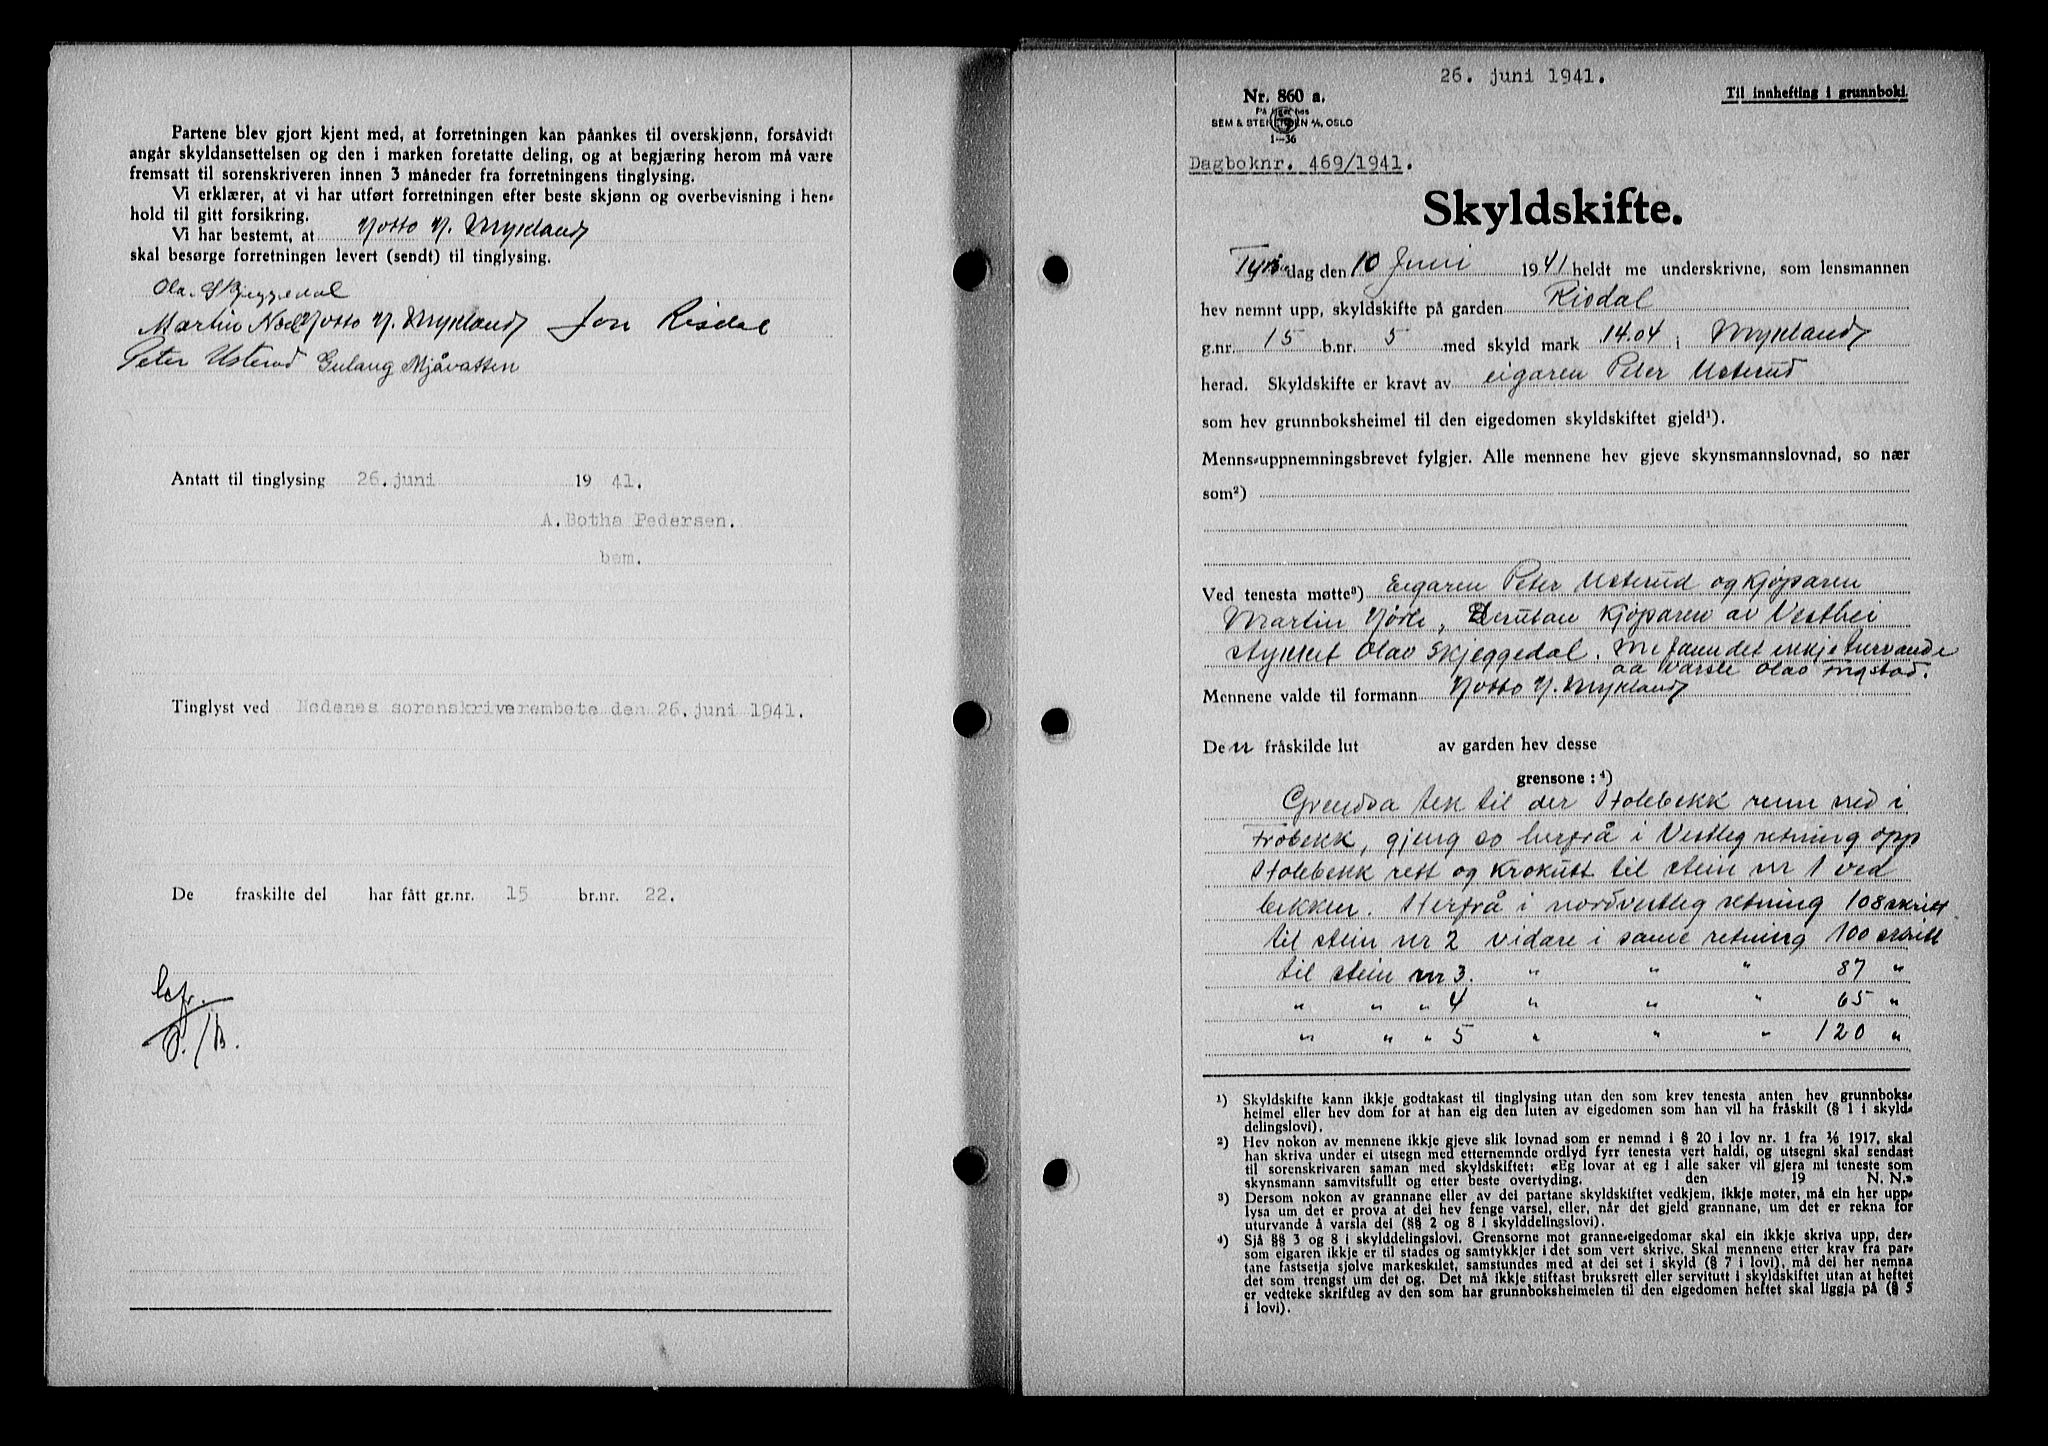 Partene blev gjort kjent med, at forretningen kan påankes til overskjønn, forsåvidt
angår skyldansettelsen og den i marken foretatte deling, og at begjæring herom må være
fremsatt til sorenskriveren innen 3 måneder fra forretningens tinglysing.
Vi erklærer, at vi har utført forretningen efter beste skjønn og overbevisning i hen-
hold til gitt forsikring.
Vi har bestemt, at Notto N. Mykland
skal besørge forretningen levert (sendt) til tinglysing.
Olav Skjeggedal
Martin Notto N. Mykland Jon Risdal
Peter Usterud Gulaug Mjåvatten
Antatt til tinglysing 26. juni 19 41.
A. Botha Pedersen.
bem.
Tinglyst ved Nedenes sorenskriverembete den 26. juni 1941.
De fraskilte del har fått gr.nr. 15 br.nr. 22.
26. juni 1941.
Nr. 860 a.
Til innhefting i grunnboki.
På lager hos
SEM & STENERSEN A/S, OSLO
1-36
Dagboknr. 469/1941.
Skyldskifte.
Tysdag den 10 Juni 1941 heldt me underskrivne, som lensmannen
hev nemnt upp, skyldskifte på garden Risdal
g.nr. 15 b.nr. 5 med skyld mark 14.04 i Mykland
herad. Skyldskifte er kravt av eigaren Peter Usterud
som hev grunnboksheimel til den eigedomen skyldskiftet gjeld¹).
Menns-uppnemningsbrevet fylgjer. Alle mennene hev gjeve skynsmannslovnad, so nær
som²)
Ved tenesta møtte³) Eigaren Peter Usterud og Kjøparen
Martin, Desutan Kjøparen av Vesthei
stykket Olav Skjeggedal. Me fann det inkje turvande
aa varsle Olav
Mennene valde til formann Notto N. Mykland
Den fråskilde lut av garden hev desse
grensone: ⁴)
Grendsa tek til der Stolebekk renn ned i
Trobekk, gjeng so herfrå i Vestleg retning opp
Stolebekk rett og krokutt til stein nr 1 ved
bekken. Herfrå i nordvestleg retning 108 skritt
til stein nr 2 vidare i same retning 100 skritt
til stein nr 3. " " " 87 "
" " " 4 " " " 65 "
" " " 5 " " " 120 "
¹) Skyldskifte kann ikkje godtakast til tinglysing utan den som krev tenesta anten hev grunnboks-
heimel eller hev dom for at han eig den luten av eigedomen som han vil ha fråskilt (§ 1 i skyld-
delingslovi).
²) Hev nokon av mennene ikkje gjeve slik lovnad som er nemnd i § 20 i lov nr. 1 fra 1/6 1917, skal
han skriva under ei utsegn med etternemnde ordlyd fyrr tenesta vert haldi, og utsegni skal sendast
til sorenskrivaren saman med skyldskiftet: «Eg lovar at eg i alle saker vil gjera mi teneste som
skynsmann samvitsfullt og etter beste overtyding. den 19 N. N.»
³) Dersom nokon av grannane eller av dei partane skyldskiftet vedkjem, ikkje møter, må ein her upp-
lysa um det er prova at dei hev fenge varsel, eller, når det gjeld grannane, um det er rekna for
uturvande å varsla dei (§§ 2 og 8 i skylddelingslovi).
⁴) Sjå §§ 3 og 8 i skylddelingslovi. Grensorne mot granne-eigedomar skal ein ikkje skriva upp, der-
som eigaren ikkje er til stades og samtykkjer i det som vert skrive. Skal mennene etter krav fra par-
tane fastsetja sjølve markeskilet, samstundes med at dei set i skyld (§ 7 i lovi), må dei her nemna
det som trengst um det og. Det må ikkje stiftast bruksrett eller servitutt i skyldskiftet utan at heftet
er vedteke skriftleg av den som har grunnboksheimelen til den eigedomen heftet skal liggja på (§ 5
i lovi).